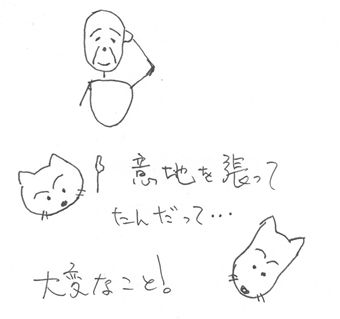 意地を張って
たんだって…
大変なこと!